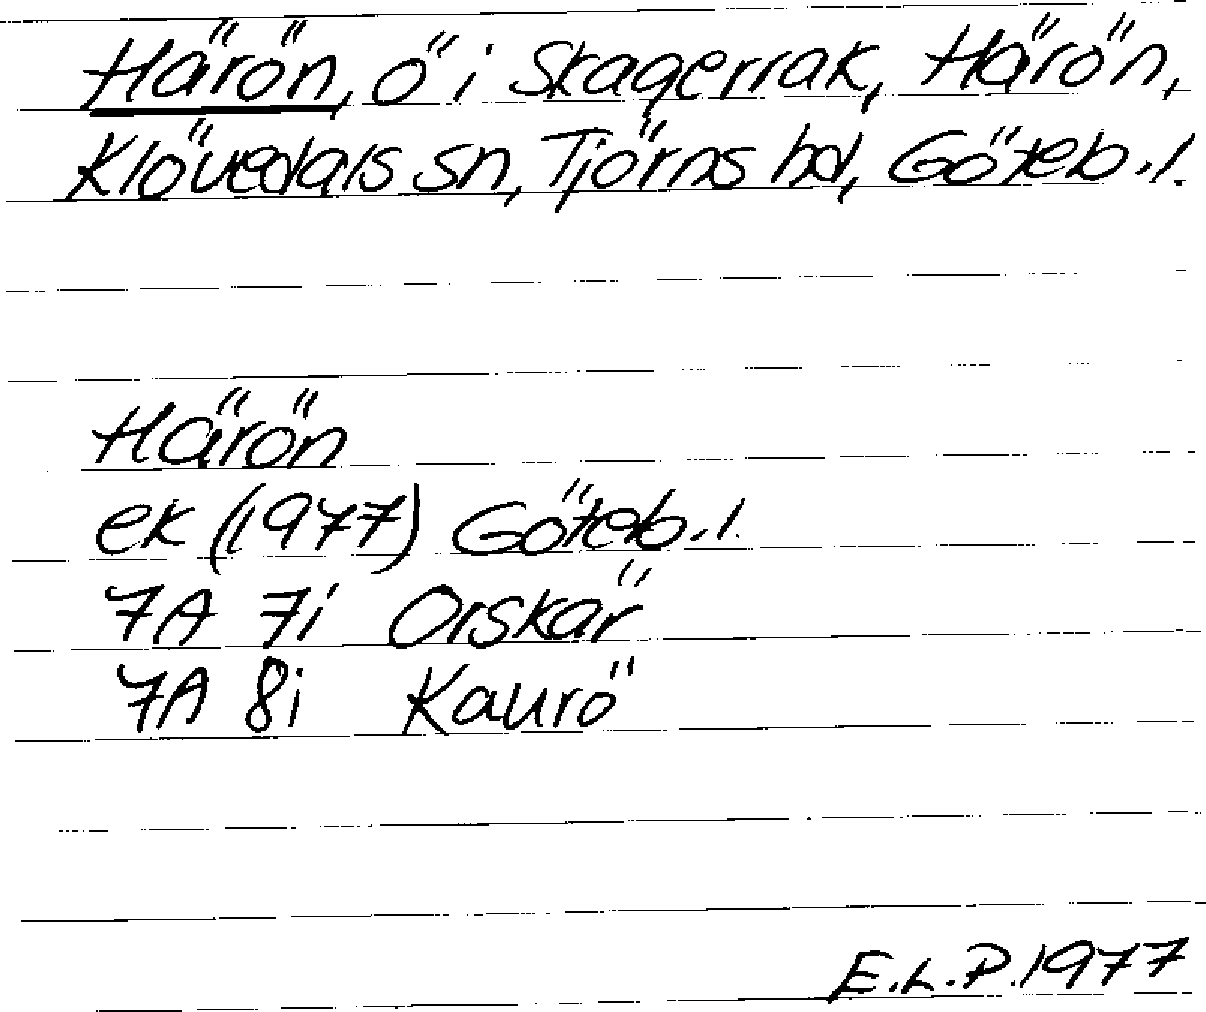 Härön, ö i Skagerrak, Härön,
Klövedals sn, Tjörns hd, Göteb.l.
Härön
ek (1977) Göteb.l.
7A 7i Orskär
7A 8i Kaurö
E.L.P.1977